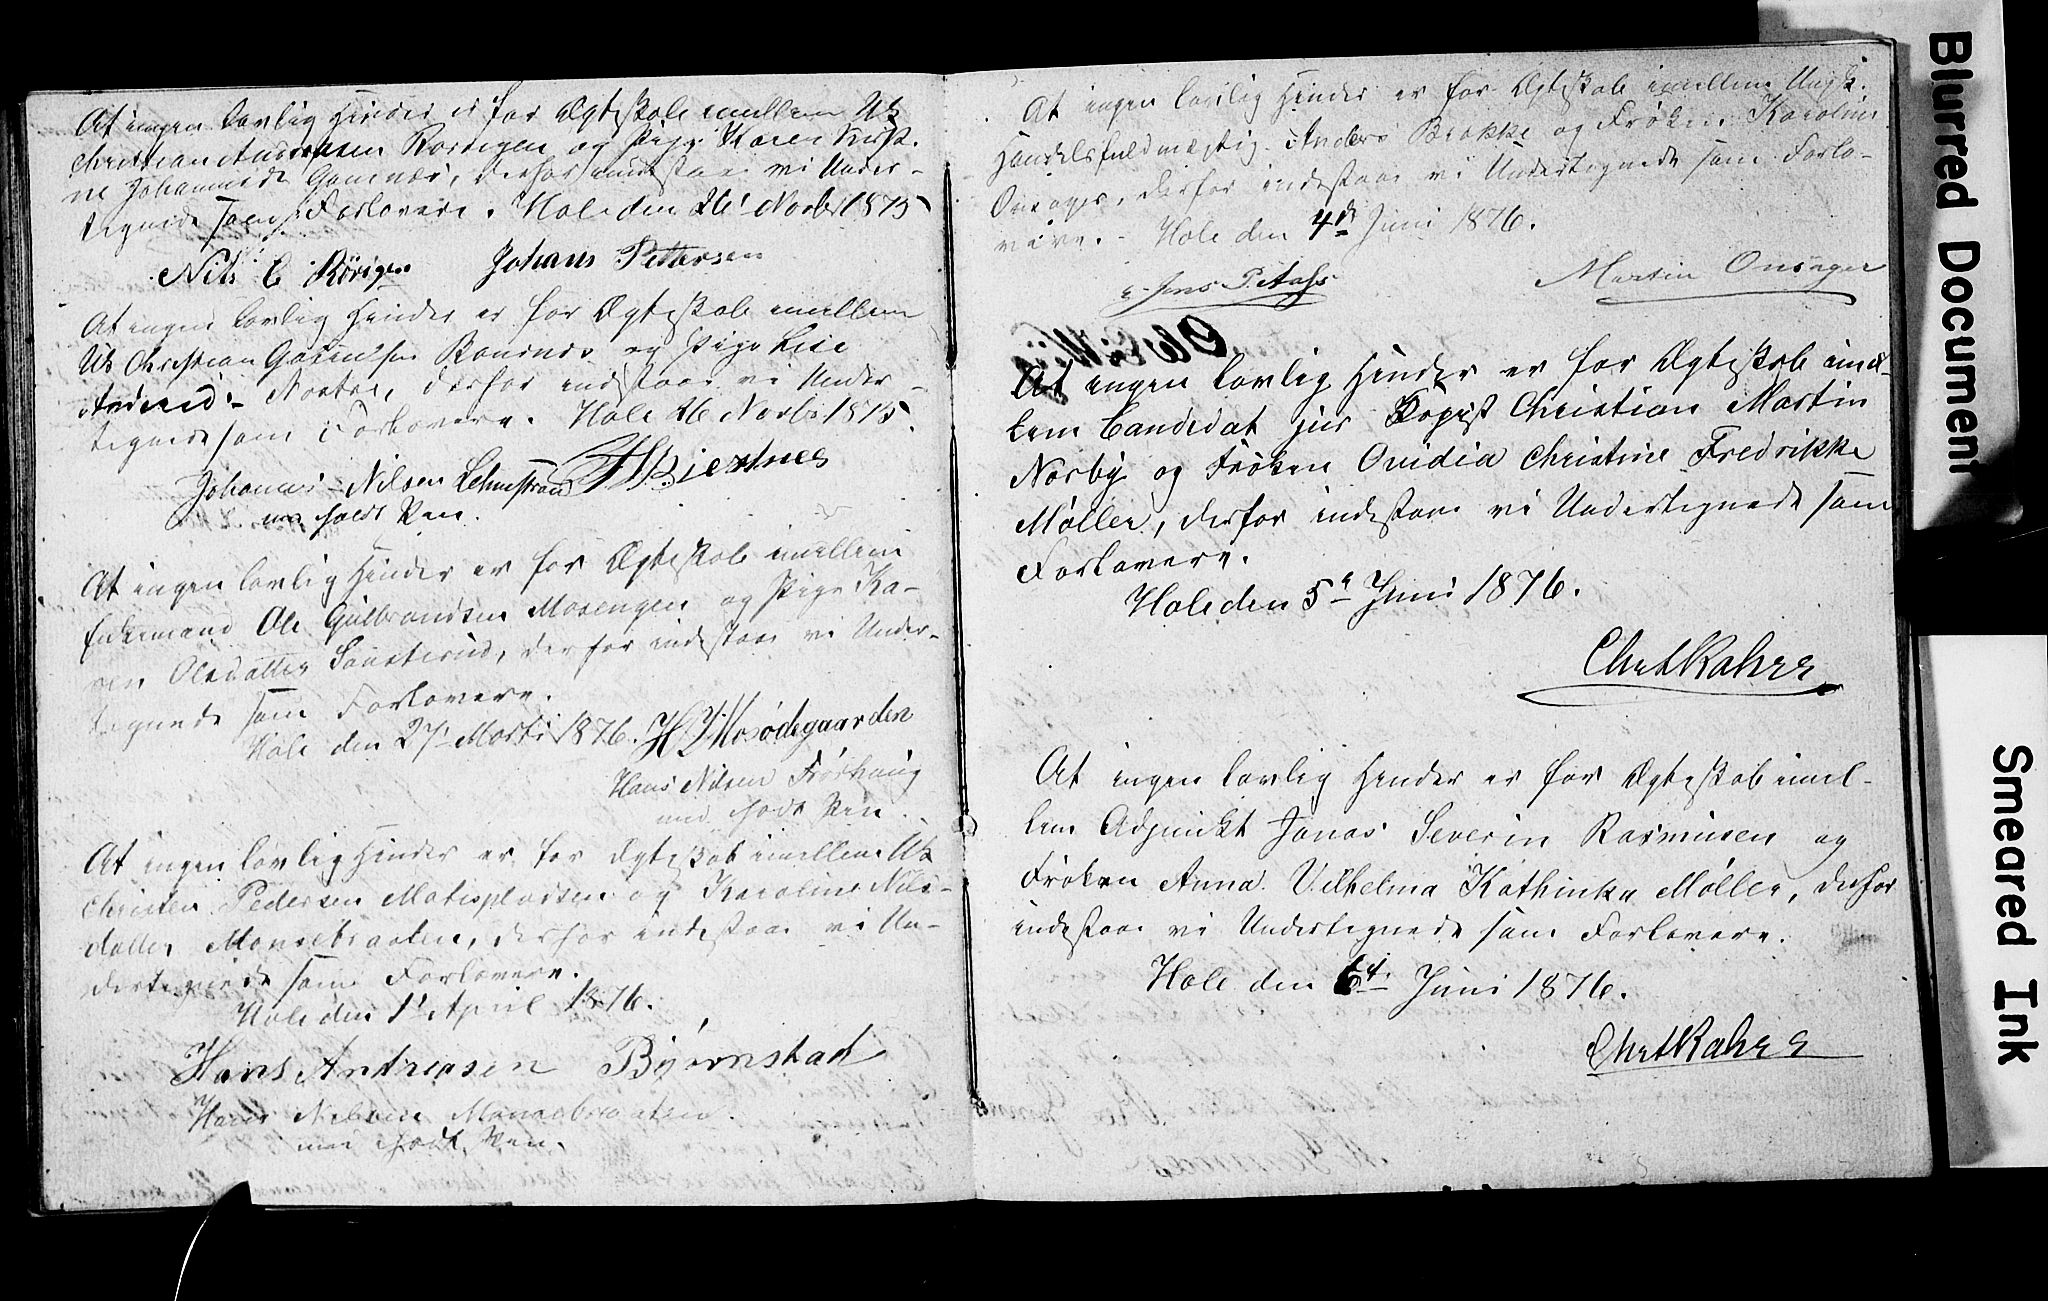 At ingen lovlig Hinder er for Ægteskab imellem Uk
Christian Andreasen Rørvigen og Pige Karen Kirst.
ne Johannesd. Gomnæs, derfor indestaae vi Under-
tegnede som Forlovere. Hole den 26' Novbr 1875
Nils C Rörigen Johans Pettersen
At ingen lovlig Hinder er for Ægteskab imellem
Uk Christian Gosensen Bønsnæs og Pige Lise
Andersd. Næstøe, derfor indestaae vi Under-
tegnede som Forlovere. Hole 26 Novbr 1875.
Johannes Nilsen Lehnestrand H Bjertnes
m. holdt Pen.
At ingen lovlig Hinder er for Ægteskab imellem
Enkemand Ole Gulbrandsen Mosengen og Pige Ka-
ren Olsdatter Sønsterud, derfor indestaae vi Under-
tegnede som Forlovere.
Hole den 27' Marts 1876. H Mosödegaarden
Hans Nilsen Frøshaug
med holdt Pen.
At ingen lovlig Hinder er for Ægteskab imellem Uk
Christen Pedersen Matispladsen og Karoline Nils-
datter Monsebraaten, derfor indestaae vi Un-
dertegnede som Forlovere.
Hole den 1' April 1876.
Hans Andreasen Byornstad
Hans Nilsen Monsebraaten
med holdt Pen.
At ingen lovlig Hinder er for Ægteskab imellem Ungk.
Handelsfuldmægtig Anders Brokke og Frøken Karoline
Onsager, derfor indestaae vi Undertegnede som Forlo-
vere. - Hole den 4de Juni 1876.
Jens P. Aass Martin Onsager
At ingen lovlig Hinder er for Ægteskab imel-
lem Candidat jur Kopist Christian Martin
Norby og Frøken Ovidia Christine Fredrikke
Møller, derfor indestaae vi Undertegnede som
Forlovere.
Hole den 5e Juni 1876.
Chr Rahrs
At ingen lovlig Hinder er for Ægteskab imel-
lem Adjunkt Jonas Severin Rasmusen og
Frøken Anna Vilhelma Kathinka Møller, derfor
indestaae vi Undertegnede som Forlovere.
Hole den 6t. Juni 1876.
Chr Rahrs
Blurred Document
Smeared Ink